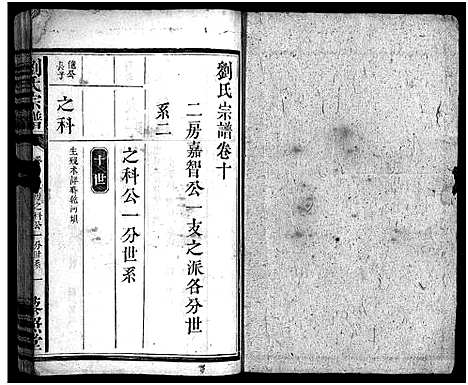 劉氏宗譜卷十
二房嘉智公一支之派各分世
系二
之科公一分世系
十世
之科
億公
長子
生歿未詳葬乾河垻
劉氏宗譜
之科公一分世系
一